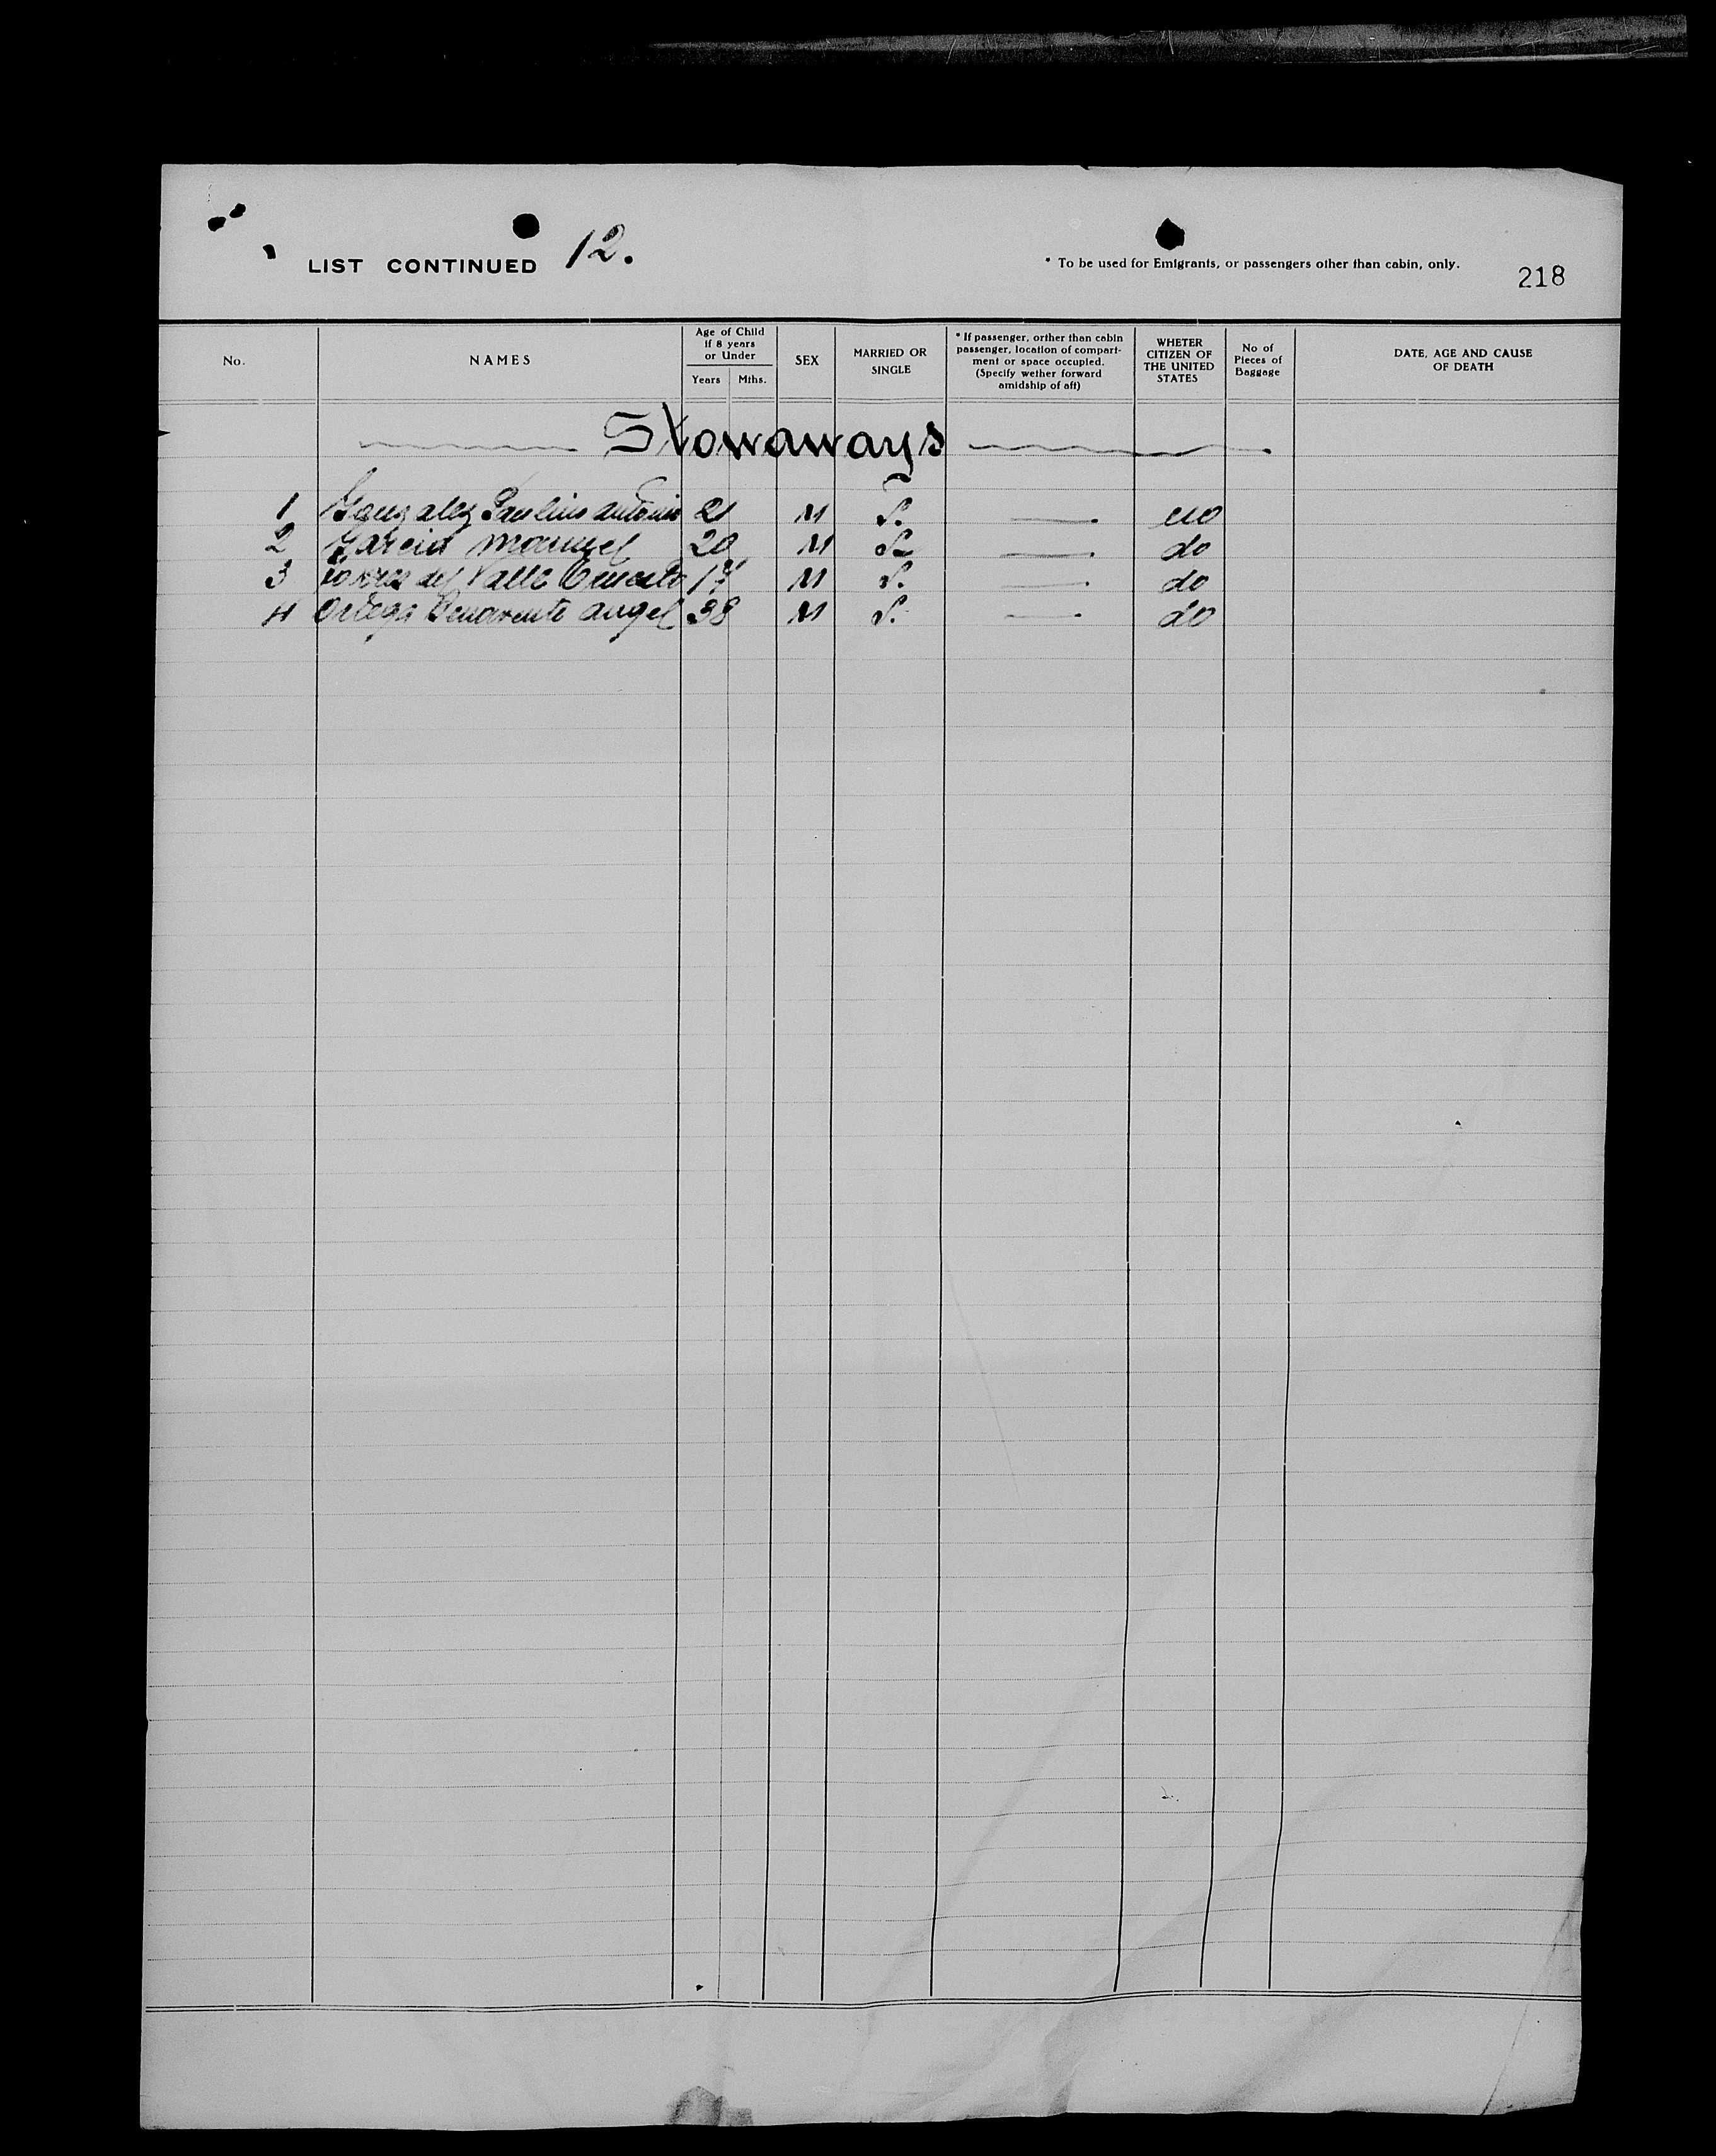 LIST CONTINUED 12.
* To be used for Emigrants, or passengers other than cabin, only.
218
No.
NAMES
Age of Child
if 8 years
or Under
Years Mths.
SEX
MARRIED OR
SINGLE
* If passenger, orther than cabin
passenger, location of compart-
ment or space occupied.
(Specify wether forward
amidship of aft)
WHETER
CITIZEN OF
THE UNITED
STATES
No of
Pieces of
Baggage
DATE, AGE AND CAUSE
OF DEATH
Stowaways
1 Gonzalez Paulino Antonio 21 M S. no
2 Garcia Manuel 20 M S. do
3 Torres del Valle Ernesto 17 M S. do
4 Ortega Benavente Angel 38 M S. do